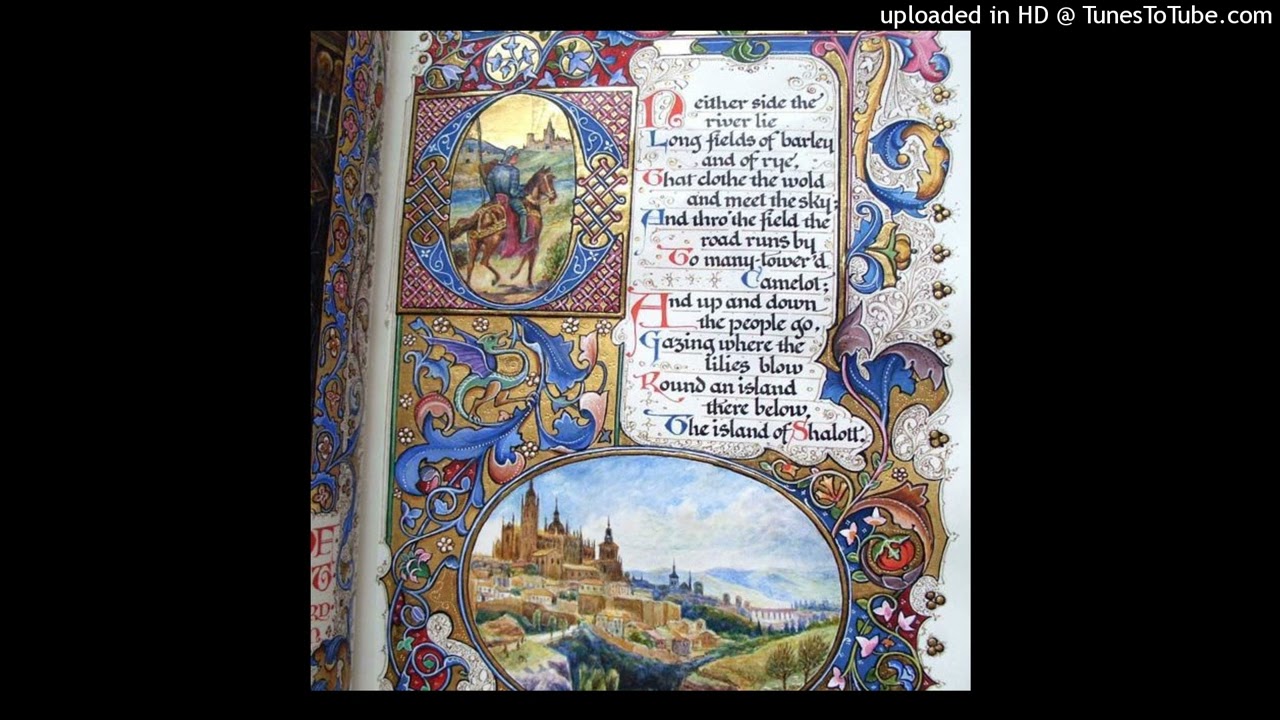 uploaded in HD @ TunesToTube.com
ON either side the
river lie
Long fields of barley
and of rye,
That clothe the wold
and meet the sky;
And thro' the field the
road runs by
To many-tower'd
Camelot;
And up and down
the people go,
Gazing where the
lilies blow
Round an island
there below,
The island of Shalott.